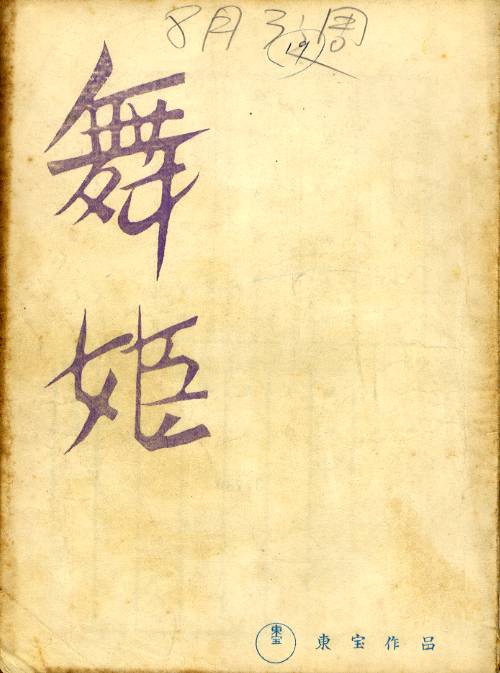 8月 3週
(19)
舞姫
東宝
東宝作品